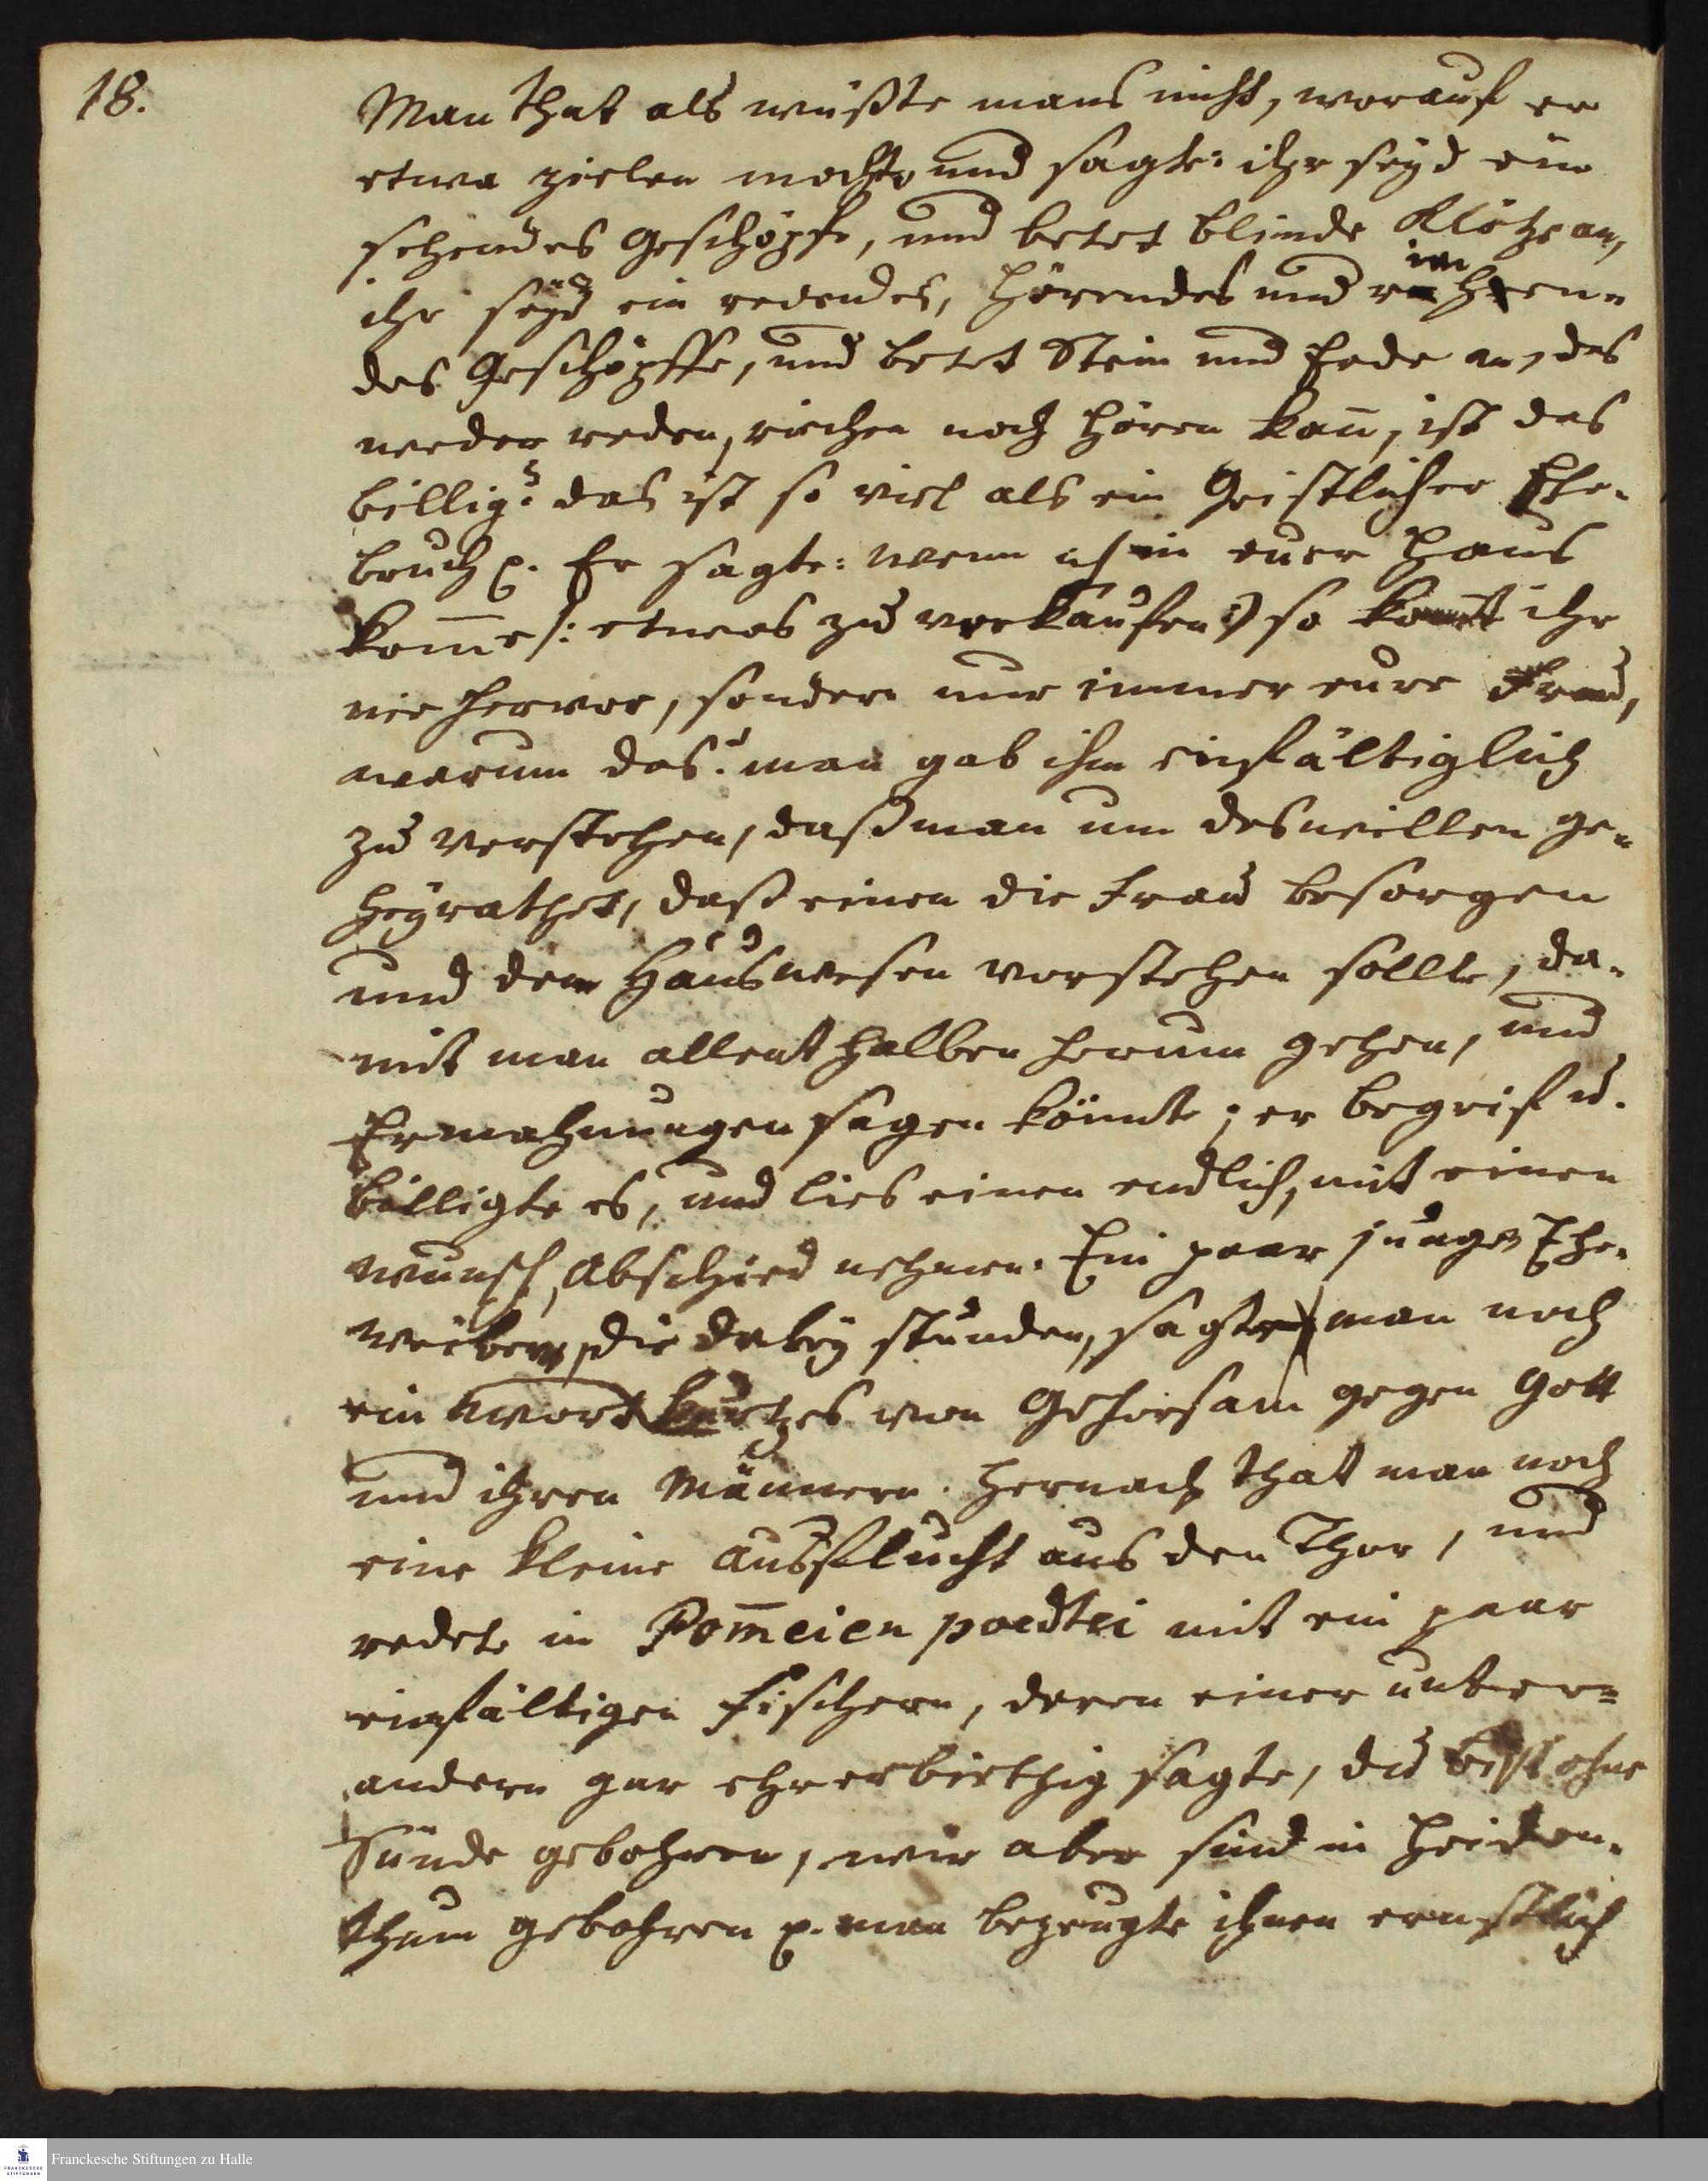 18.
Man that als wüßte mans nicht, worauf er
etwa zielen mochte und sagte: ihr seyd ein
sehendes Geschöpfe, und betet blinde Klötze an,
ihr seyd ein redendes, hörendes und riechen-
des Geschöpffe, und betet Stein und Erde an, das
weder reden, riechen noch hören kan̄, ist das
billig? das ist so viel als ein Geistlicher Ehe-
bruch p. Er sagte: wenn ich in euer Haus
kom̄e /: etwas zu verkaufen :/ so komt ihr
nie hervor, sondern nur immer eure Frau,
warum das? man gab ihm einfältiglich
zu verstehen, daß man um deswillen ge-
heyrathet, daß einen die Frau besorgen
und dem Hauswesen vorstehen sollte, da-
mit man allenthalben herum gehen, und
Ermahnungen sagen könnte; er begrif u.
billigte es, und lies einen endlich, mit einen
wunsch, Abschied nehmen. Ein paar junge Ehe-
weibern, die dabey stunden, sagte man noch
ein wort kurtzes von Gehorsam gegen Gott
und ihren Männern. Hernach that man noch
eine kleine Ausflucht aus den Thor, und
redete in Pom̄eien poedtei mit ein paar
einfältigen Fischern, deren einer unter-
andern gar ehrerbiethig sagte, du bist ohne
Sünde gebohren, wir aber sind in Heiden-
thum gebohren p. man bezeugte ihnen ernstlich
Franckesche Stiftungen zu Halle
FRANCKESCHE
STIFTUNGEN